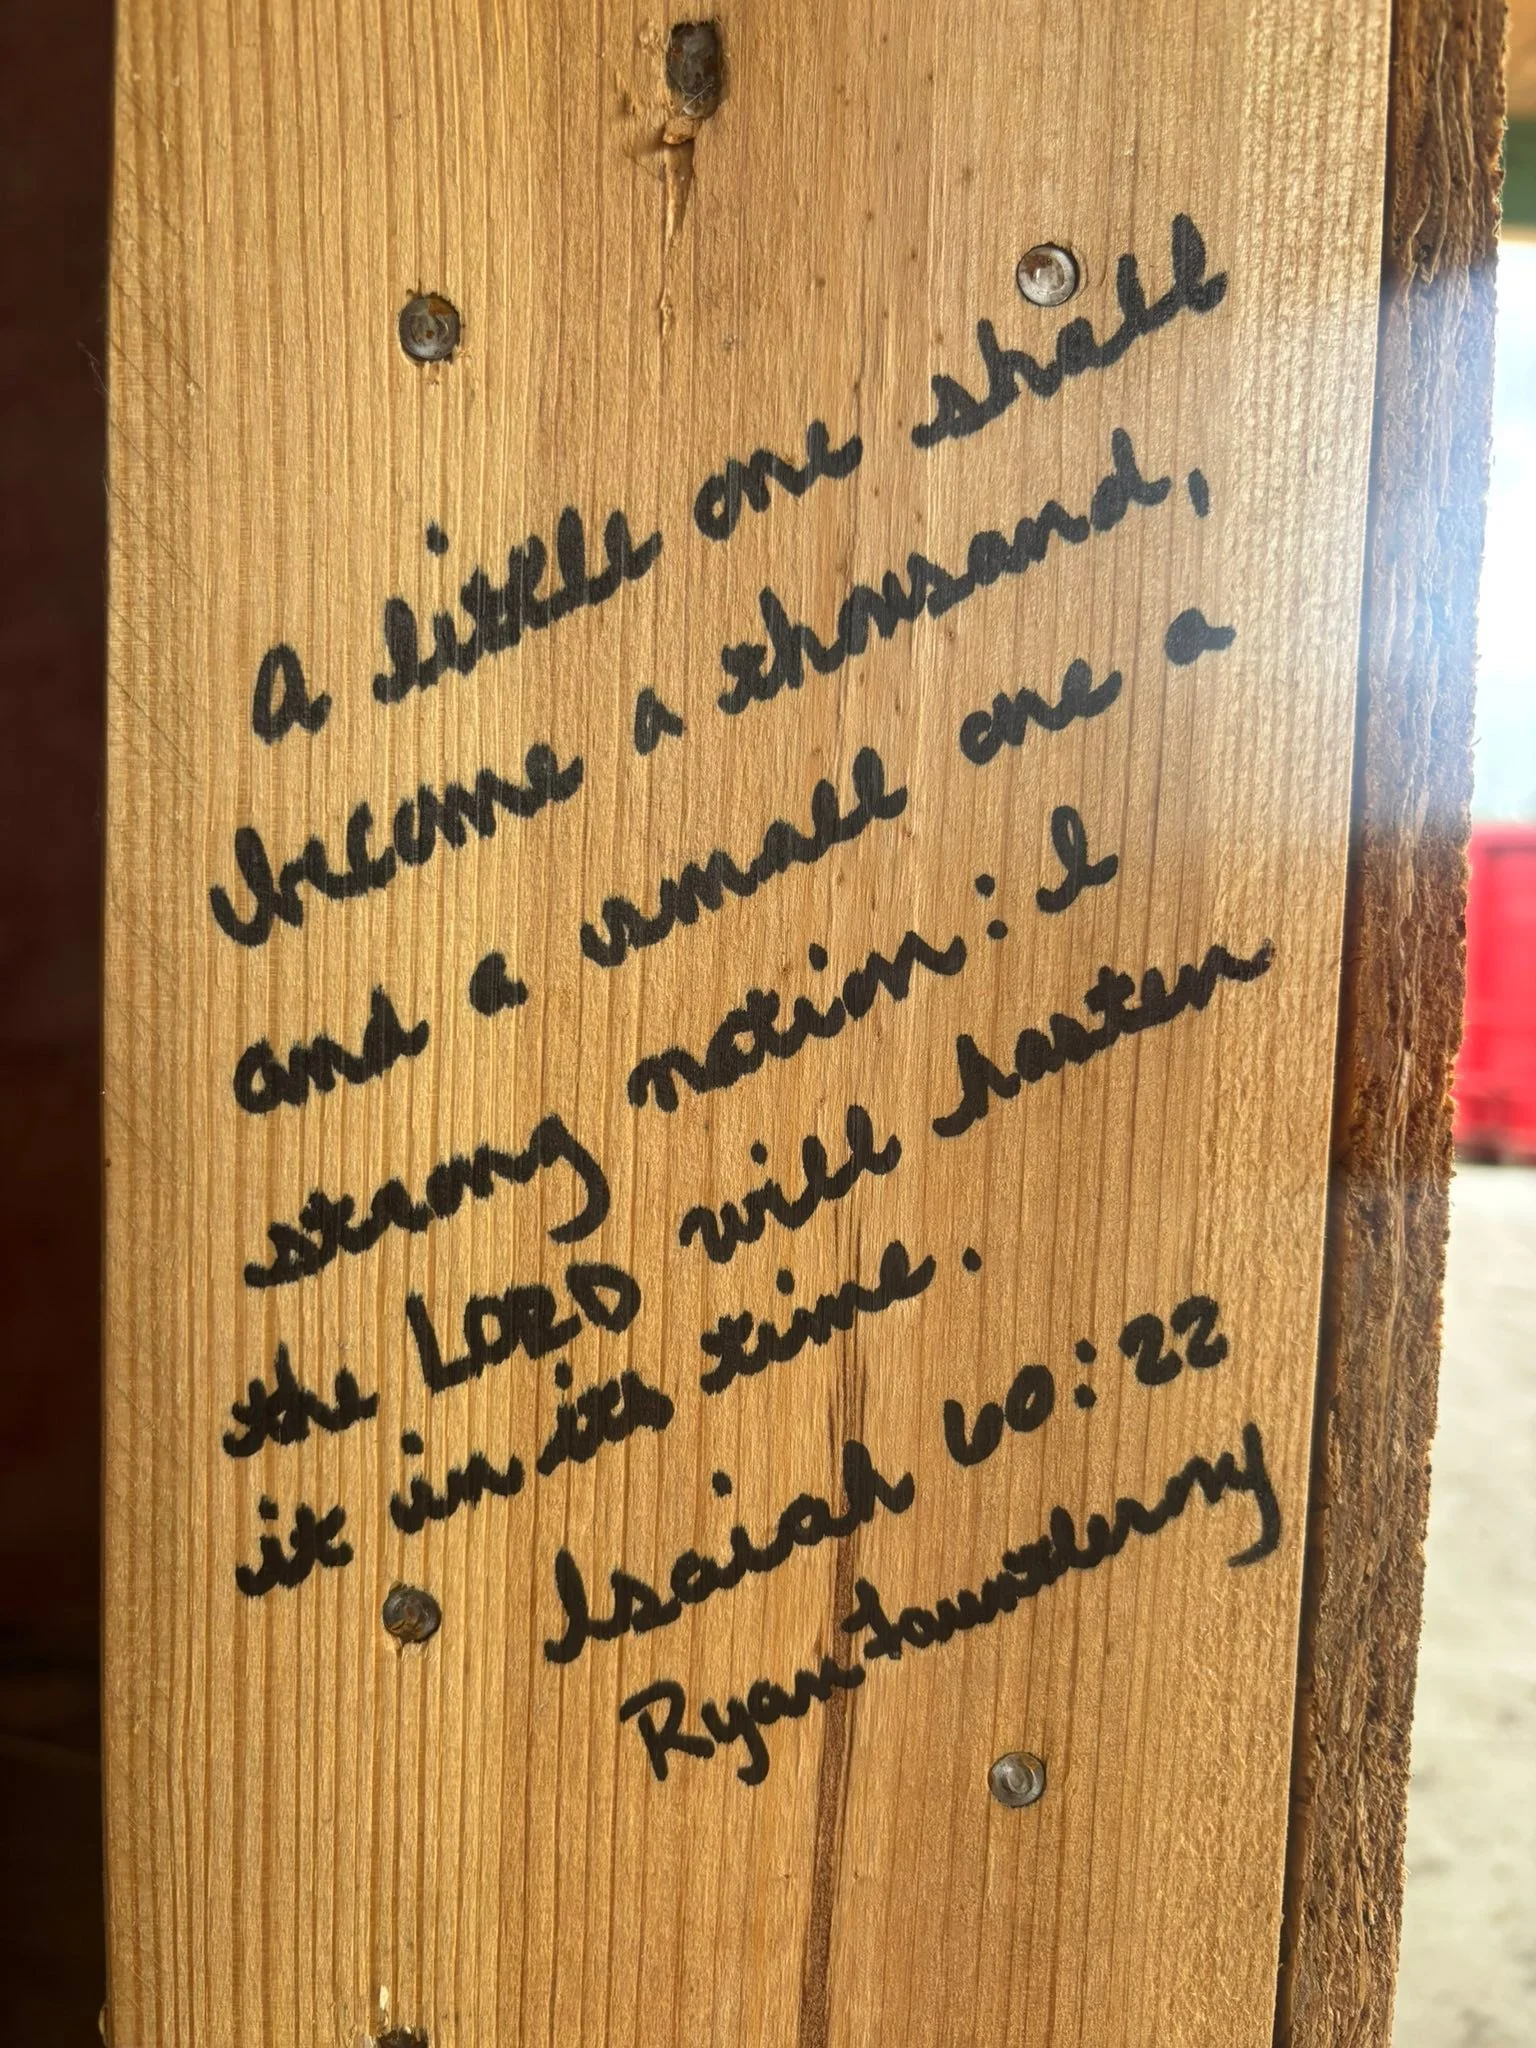 A little one shall
become a thousand,
and a small one a
strong nation: I
the LORD will hasten
it in its time.
Isaiah 60:22
Ryan